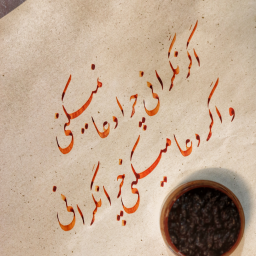 اگر نگرانی چرا دعا میکنی
و اگر دعا میکنی چرا نگرانی